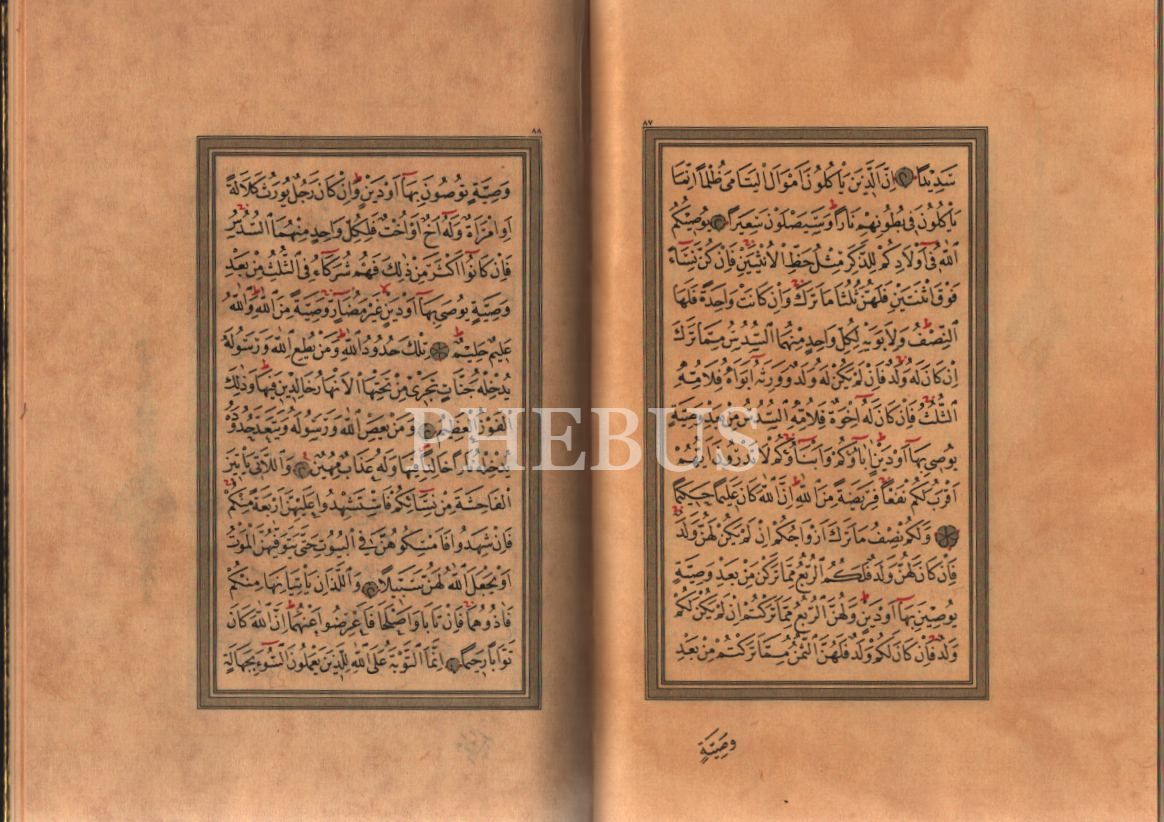 ٨٧
سَدِيدًا ۝ اِنَّ الَّذِينَ يَأْكُلُونَ اَمْوَالَ الْيَتَامٰى ظُلْمًا اِنَّمَا
يَأْكُلُونَ فِى بُطُونِهِمْ نَارًا وَسَيَصْلَوْنَ سَعِيرًا ۝ يُوصِيكُمُ
اللّٰهُ فِٓى اَوْلَادِكُمْ لِلذَّكَرِ مِثْلُ حَظِّ الْاُنْثَيَيْنِ فَاِنْ كُنَّ نِسَٓاءً
فَوْقَ اثْنَتَيْنِ فَلَهُنَّ ثُلُثَا مَا تَرَكَ وَاِنْ كَانَتْ وَاحِدَةً فَلَهَا
النِّصْفُ وَلِاَبَوَيْهِ لِكُلِّ وَاحِدٍ مِنْهُمَا السُّدُسُ مِمَّا تَرَكَ
اِنْ كَانَ لَهُ وَلَدٌ فَاِنْ لَمْ يَكُنْ لَهُ وَلَدٌ وَوَرِثَهُٓ اَبَوَاهُ فَلِاُمِّهِ
الثُّلُثُ فَاِنْ كَانَ لَهُٓ اِخْوَةٌ فَلِاُمِّهِ السُّدُسُ مِنْ بَعْدِ وَصِيَّةٍ
يُوصِى بِهَٓا اَوْ دَيْنٍ اٰبَٓاؤُكُمْ وَاَبْنَٓاؤُكُمْ لَا تَدْرُونَ اَيُّهُمْ
اَقْرَبُ لَكُمْ نَفْعًا فَرِيضَةً مِنَ اللّٰهِ اِنَّ اللّٰهَ كَانَ عَلِيمًا حَكِيمًا
۝ وَلَكُمْ نِصْفُ مَا تَرَكَ اَزْوَاجُكُمْ اِنْ لَمْ يَكُنْ لَهُنَّ وَلَدٌ
فَاِنْ كَانَ لَهُنَّ وَلَدٌ فَلَكُمُ الرُّبُعُ مِمَّا تَرَكْنَ مِنْ بَعْدِ وَصِيَّةٍ
يُوصِينَ بِهَٓا اَوْ دَيْنٍ وَلَهُنَّ الرُّبُعُ مِمَّا تَرَكْتُمْ اِنْ لَمْ يَكُنْ لَكُمْ
وَلَدٌ فَاِنْ كَانَ لَكُمْ وَلَدٌ فَلَهُنَّ الثُّمُنُ مِمَّا تَرَكْتُمْ مِنْ بَعْدِ
وَصِيَّةٍ
٨٨
وَصِيَّةٍ تُوصُونَ بِهَٓا اَوْ دَيْنٍ وَاِنْ كَانَ رَجُلٌ يُورَثُ كَلَالَةً
اَوِ امْرَاَةٌ وَلَهُٓ اَخٌ اَوْ اُخْتٌ فَلِكُلِّ وَاحِدٍ مِنْهُمَا السُّدُسُ
فَاِنْ كَانُٓوا اَكْثَرَ مِنْ ذٰلِكَ فَهُمْ شُرَكَٓاءُ فِى الثُّلُثِ مِنْ بَعْدِ
وَصِيَّةٍ يُوصٰى بِهَٓا اَوْ دَيْنٍ غَيْرَ مُضَٓارٍّ وَصِيَّةً مِنَ اللّٰهِ وَاللّٰهُ
عَلِيمٌ حَلِيمٌ ۝ تِلْكَ حُدُودُ اللّٰهِ وَمَنْ يُطِعِ اللّٰهَ وَرَسُولَهُ
يُدْخِلْهُ جَنَّاتٍ تَجْرِى مِنْ تَحْتِهَا الْاَنْهَارُ خَالِدِينَ فِيهَا وَذٰلِكَ
الْفَوْزُ الْعَظِيمُ ۝ وَمَنْ يَعْصِ اللّٰهَ وَرَسُولَهُ وَيَتَعَدَّ حُدُودَهُ
يُدْخِلْهُ نَارًا خَالِدًا فِيهَا وَلَهُ عَذَابٌ مُهِينٌ ۝ وَالّٰتِى يَأْتِينَ
الْفَاحِشَةَ مِنْ نِسَٓائِكُمْ فَاسْتَشْهِدُوا عَلَيْهِنَّ اَرْبَعَةً مِنْكُمْ
فَاِنْ شَهِدُوا فَاَمْسِكُوهُنَّ فِى الْبُيُوتِ حَتّٰى يَتَوَفّٰيهُنَّ الْمَوْتُ
اَوْ يَجْعَلَ اللّٰهُ لَهُنَّ سَبِيلًا ۝ وَالَّذَانِ يَأْتِيَانِهَا مِنْكُمْ
فَاٰذُوهُمَا فَاِنْ تَابَا وَاَصْلَحَا فَاَعْرِضُوا عَنْهُمَا اِنَّ اللّٰهَ كَانَ
تَوَّابًا رَحِيمًا ۝ اِنَّمَا التَّوْبَةُ عَلَى اللّٰهِ لِلَّذِينَ يَعْمَلُونَ السُّٓوءَ بِجَهَالَةٍ
PHEBUS